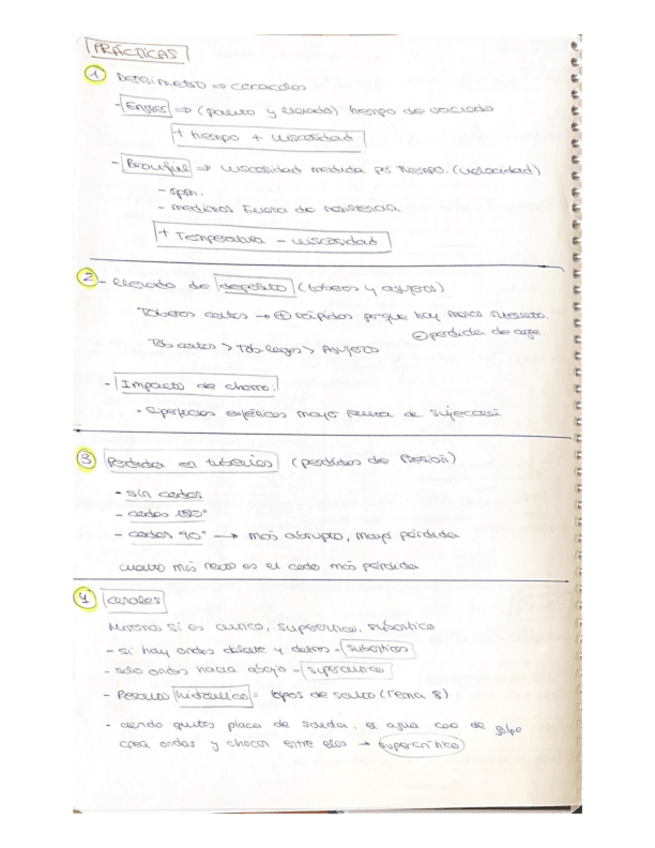 PRÁCTICAS
1 ⇒ caracoles
- Engler ⇒ (palito y vaciado) tiempo de vaciado
+ tiempo + viscosidad
- ⇒ viscosidad medida por tiempo. (velocidad)
- rpm.
- medimos fuerza de resistencia
+ Temperatura - viscosidad
2 - llenado de depósito (toberas y agujeros)
Toberas cortas → + rápidas porque hay menos
perdida de carga.
Tob cortas > Tob. largas > Agujeros
- Impacto de chorro.
- Superficies esféricas mayor fuerza de
3 Perdidas en tuberías (perdidas de Presión)
- sin codos
- codos 180°
- codos 90° → más abrupto, mayor pérdida
cuanto más recto es el codo más pérdida
4 canales
si es crítico, supercrítico, subcrítico
- si hay ondas delante y detrás - subcrítico
- solo ondas hacia abajo - supercrítico
- Resalto hidráulico = tipos de salto (Tema 8)
- cuando quitas placa de salida. el agua cae de golpe
crea ondas y chocan entre ellas → supercrítico